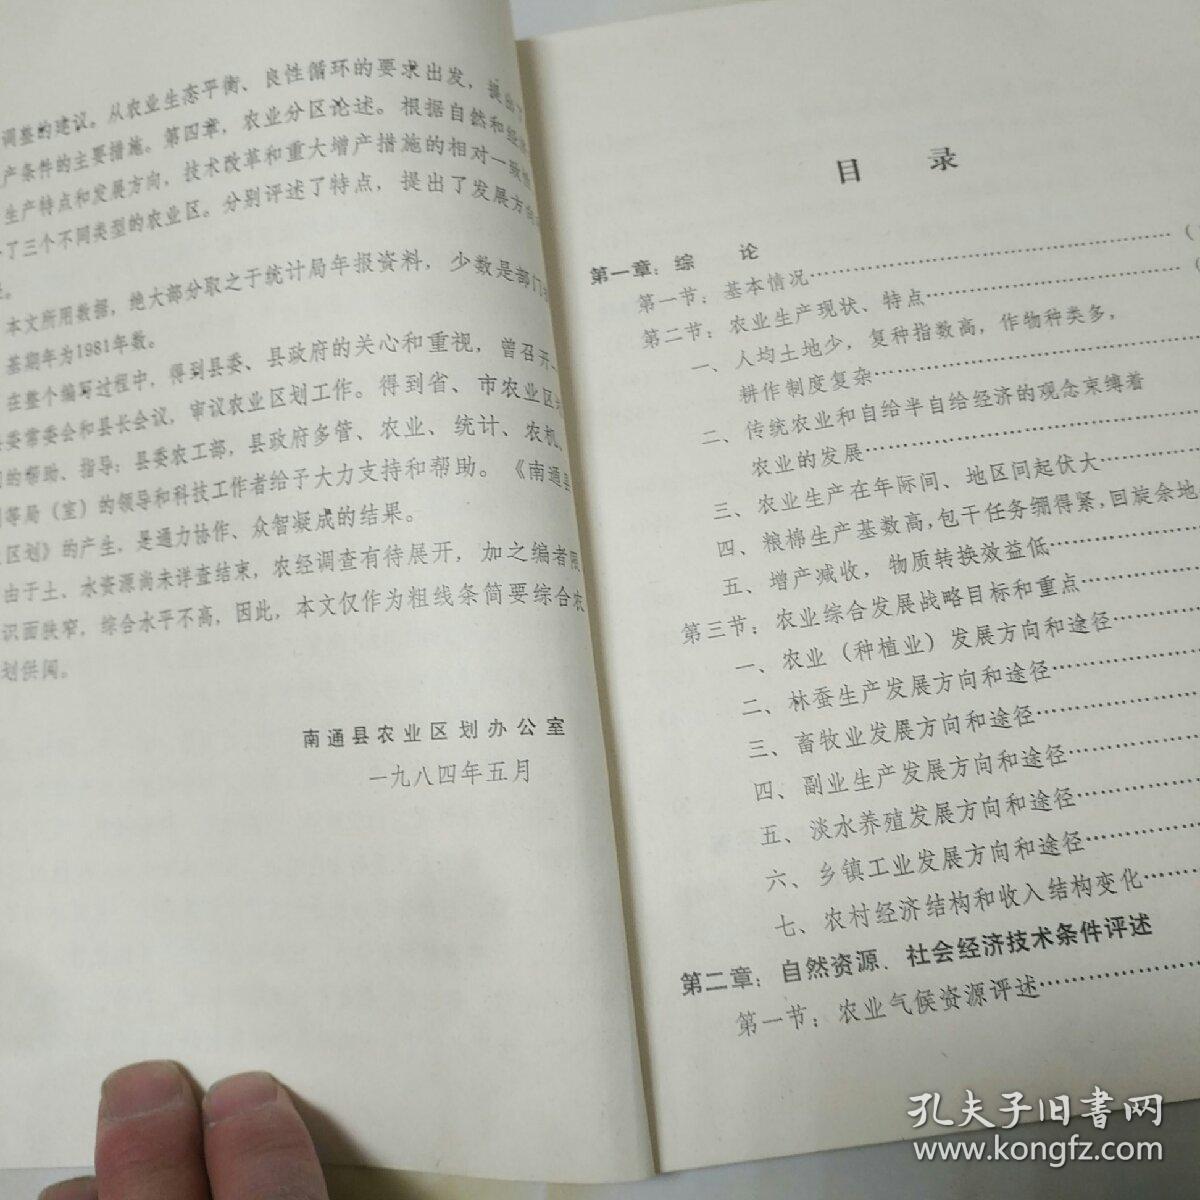 调整的建议。从农业生态平衡、良性循环的要求出发，提出了
产条件的主要措施。第四章，农业分区论述。根据自然和经济
生产特点和发展方向，技术改革和重大增产措施的相对一致性
了三个不同类型的农业区。分别评述了特点，提出了发展方向
本文所用数据，绝大部分取之于统计局年报资料，少数是部门
基期年为1981年数。
在整个编写过程中，得到县委、县政府的关心和重视，曾召开
委常委会和县长会议，审议农业区划工作。得到省、市农业区划
的帮助、指导；县委农工部，县政府多管、农业、统计、农机、
等局（室）的领导和科技工作者给予大力支持和帮助。《南通县
区划》的产生，是通力协作、众智凝成的结果。
由于土、水资源尚未详查结束，农经调查有待展开，加之编者限
识面狭窄，综合水平不高，因此，本文仅作为粗线条简要综合农
划供阅。
南通县农业区划办公室
一九八四年五月
目 录
第一章：综 论
第一节：基本情况……………………………………（
第二节：农业生产现状、特点……………………（
一、人均土地少，复种指数高，作物种类多，
耕作制度复杂……………………………
二、传统农业和自给半自给经济的观念束缚着
农业的发展……………………………
三、农业生产在年际间、地区间起伏大………
四、粮棉生产基数高，包干任务绷得紧，回旋余地
五、增产减收，物质转换效益低…………
第三节：农业综合发展战略目标和重点…………
一、农业（种植业）发展方向和途径………
二、林蚕生产发展方向和途径……………
三、畜牧业发展方向和途径……………
四、副业生产发展方向和途径…………
五、淡水养殖发展方向和途径…………
六、乡镇工业发展方向和途径…………
七、农村经济结构和收入结构变化……
第二章：自然资源、社会经济技术条件评述
第一节：农业气候资源评述……………
孔夫子旧书网
www.kongfz.com